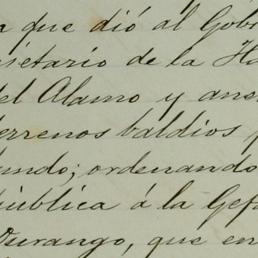 a que dió al Gobi
ietario de la Ha
del Alamo y ane
terrenos baldios p
undo; ordenando
pública á la Gef
Durango, que en